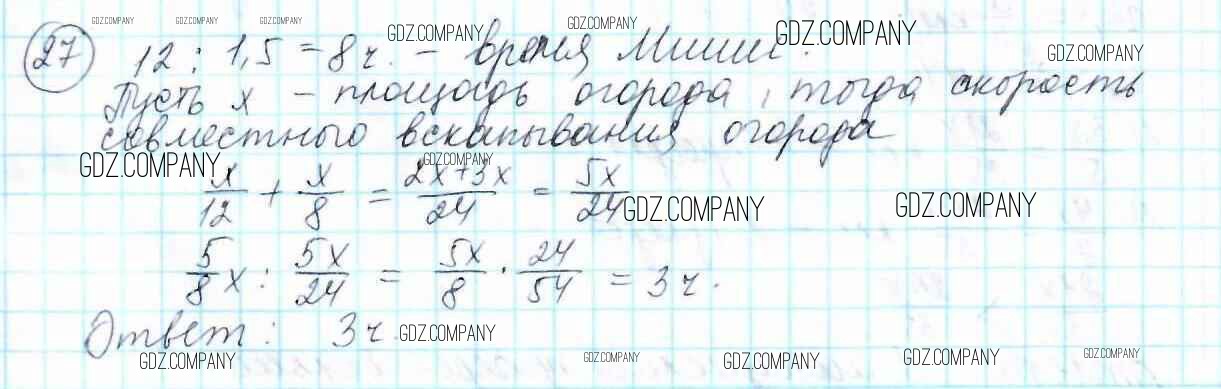 GDZ.COMPANY GDZ.COMPANY GDZ.COMPANY GDZ.COMPANY GDZ.COMPANY GDZ.COMPANY GDZ.COMPANY
27 12 : 1,5 = 8ч. – время Миши.
Пусть x – площадь огорода, тогда скорость
совместного вскапывания огорода
GDZ.COMPANY GDZ.COMPANY
x/12 + x/8 = 2x+3x/24 = 5x/24
GDZ.COMPANY GDZ.COMPANY
5/8 x : 5x/24 = 5x/8 · 24/54 = 3ч.
Ответ: 3ч.
GDZ.COMPANY
GDZ.COMPANY GDZ.COMPANY GDZ.COMPANY GDZ.COMPANY GDZ.COMPANY